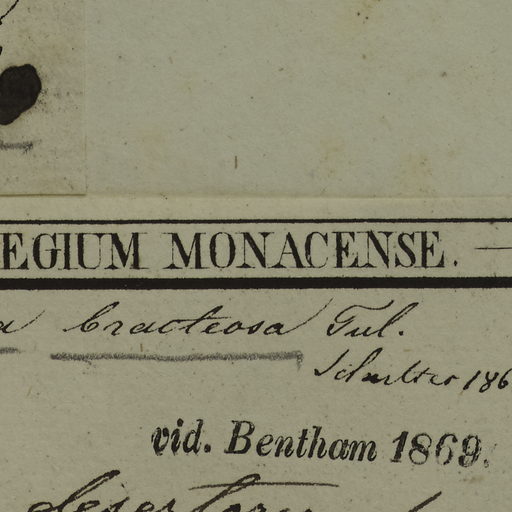 EGIUM MONACENSE. —
a bracteosa Tul.
186
vid. Bentham 1869.